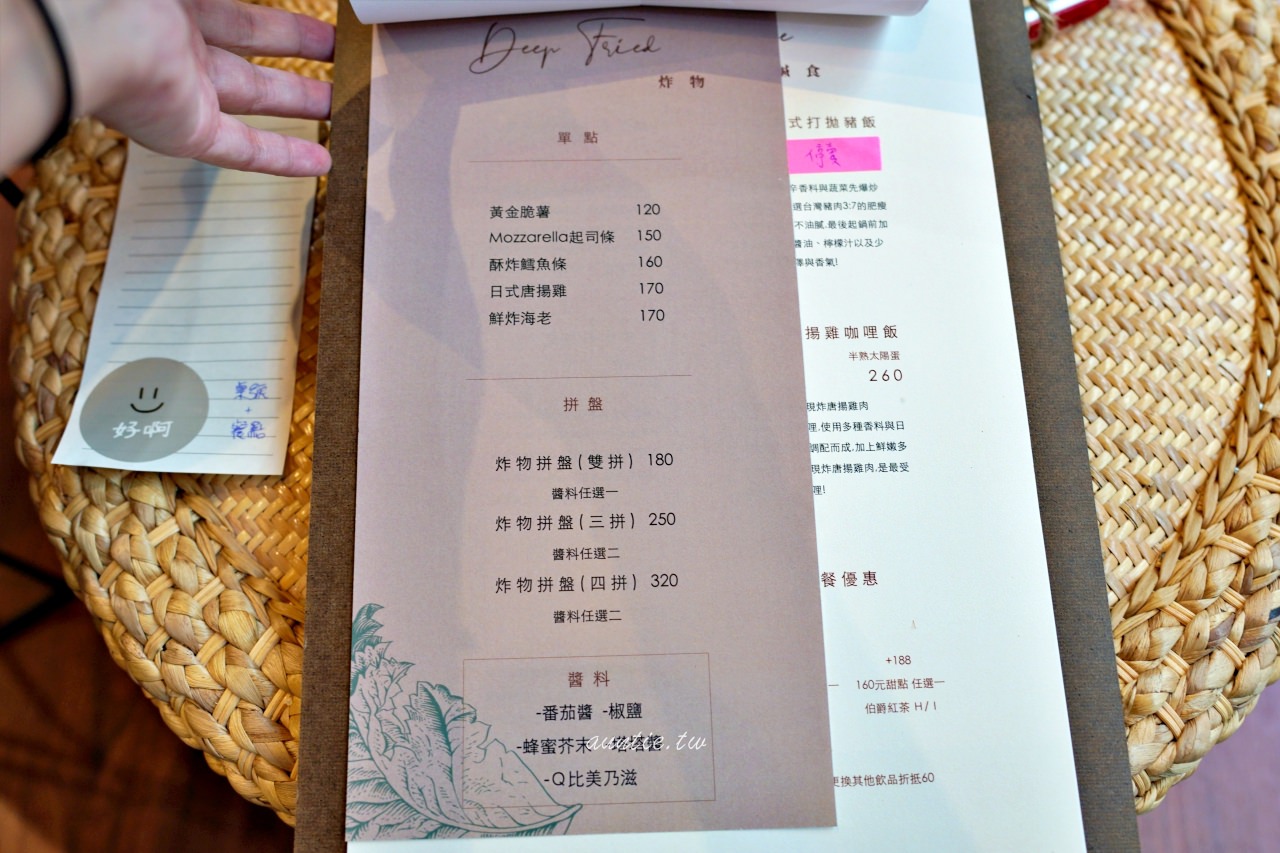 Deep Fried
炸物
單點
黃金脆薯 120
Mozzarella起司條 150
酥炸鱈魚條 160
日式唐揚雞 170
鮮炸海老 170
拼盤
炸物拼盤(雙拼) 180
醬料任選一
炸物拼盤(三拼) 250
醬料任選二
炸物拼盤(四拼) 320
醬料任選二
醬料
-番茄醬 -椒鹽
-蜂蜜芥末 -塔塔醬
-Q比美乃滋
auntie.tw
鹹食
式打拋豬飯
停賣
辛香料與蔬菜先爆炒
選台灣豬肉3:7的肥瘦
不油膩,最後起鍋前加
醬油、檸檬汁以及少
澤與香氣!
揚雞咖哩飯
半熟太陽蛋
260
現炸唐揚雞肉
哩,使用多種香料與日
調配而成,加上鮮嫩多
現炸唐揚雞肉,是最受
哩!
餐優惠
+188
一 160元甜點 任選一
伯爵紅茶 H/I
更換其他飲品折抵60
好啊
桌號
+
餐點